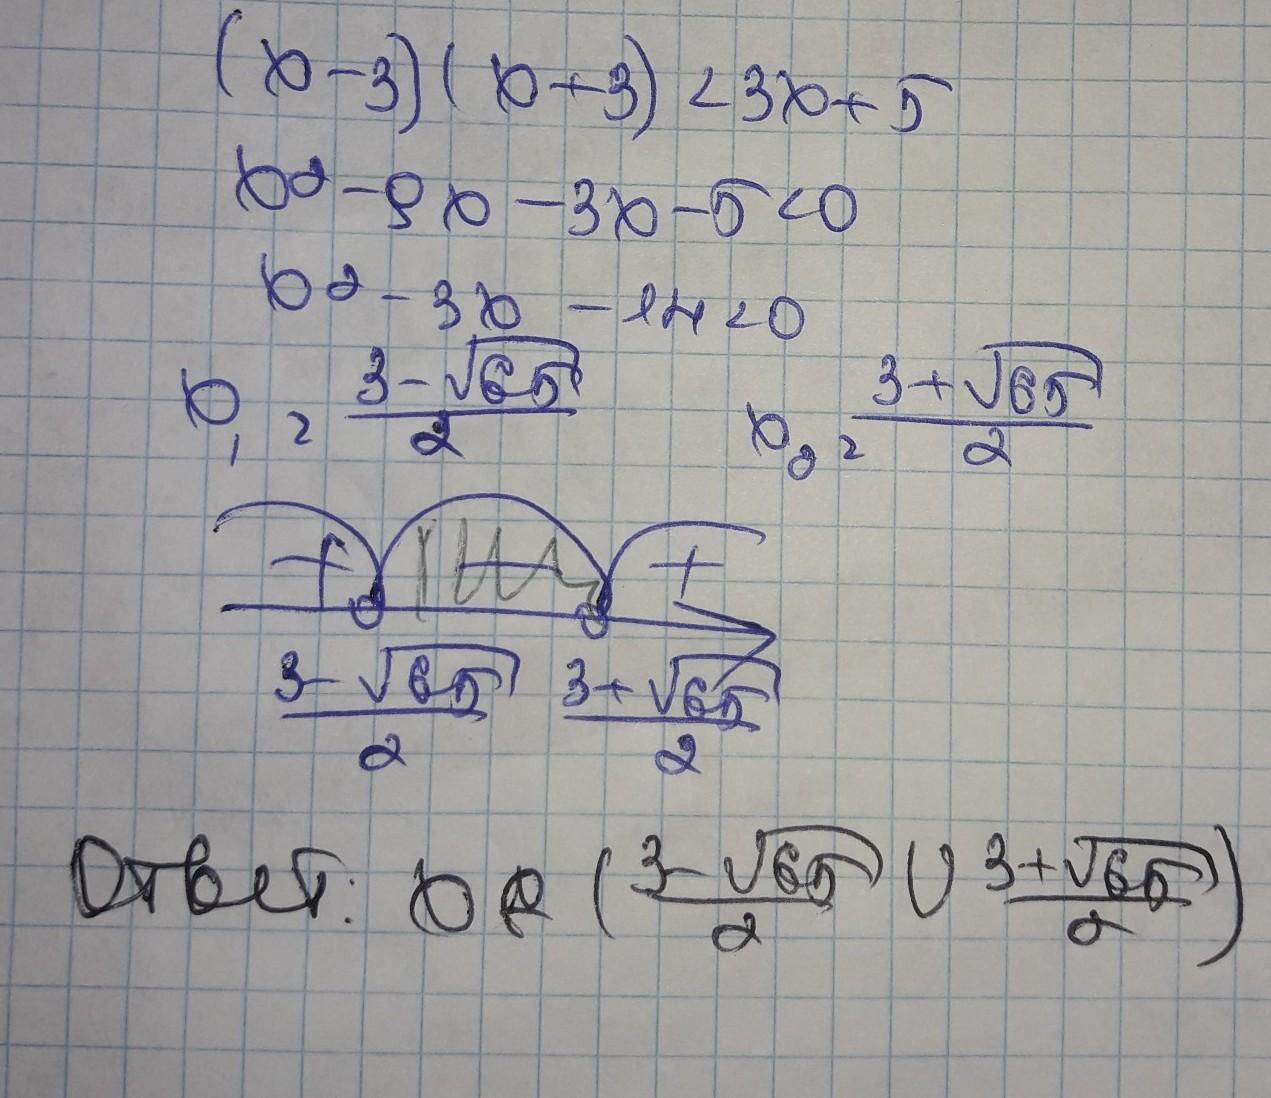 (x-3)(x+3)<3x+5
x²-9x-3x-5<0
x²-3x-14<0
x₁=(3-√65)/2 x₂=(3+√65)/2
+ - +
(3-√65)/2 (3+√65)/2
Ответ: x ∈ ((3-√65)/2 ∪ (3+√65)/2)